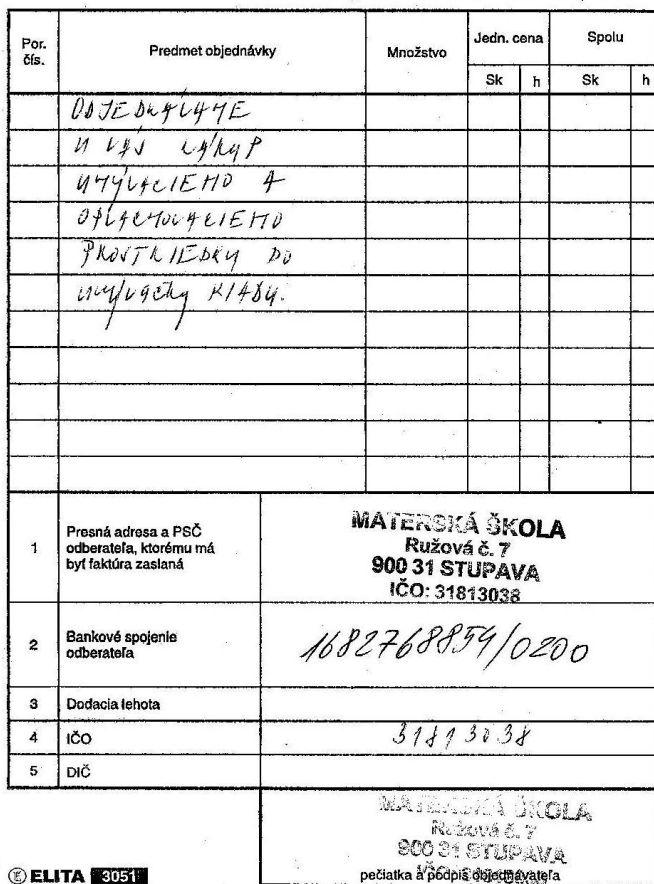 Por. čís.
Predmet objednávky
Množstvo
Jedn. cena
Spolu
Sk
h
Sk
h
OBJEDNÁVAME
U VÁS NÁKUP
UMÝVACIEHO A
OPLACHOVACIEHO
PROSTRIEDKU DO
umývačky RIADU.
1
Presná adresa a PSČ
odberateľa, ktorému má
byť faktúra zaslaná
MATERSKÁ ŠKOLA
Ružová č. 7
900 31 STUPAVA
IČO: 31813038
2
Bankové spojenie
odberateľa
1682768854/0200
3
Dodacia lehota
4
IČO
31813038
5
DIČ
MATERSKÁ ŠKOLA
Ružová č. 7
900 31 STUPAVA
pečiatka a podpis objednávateľa
E ELITA 3051